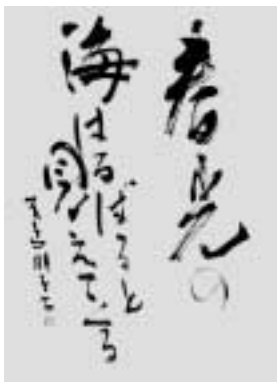 春光の
海はるばると
見えている